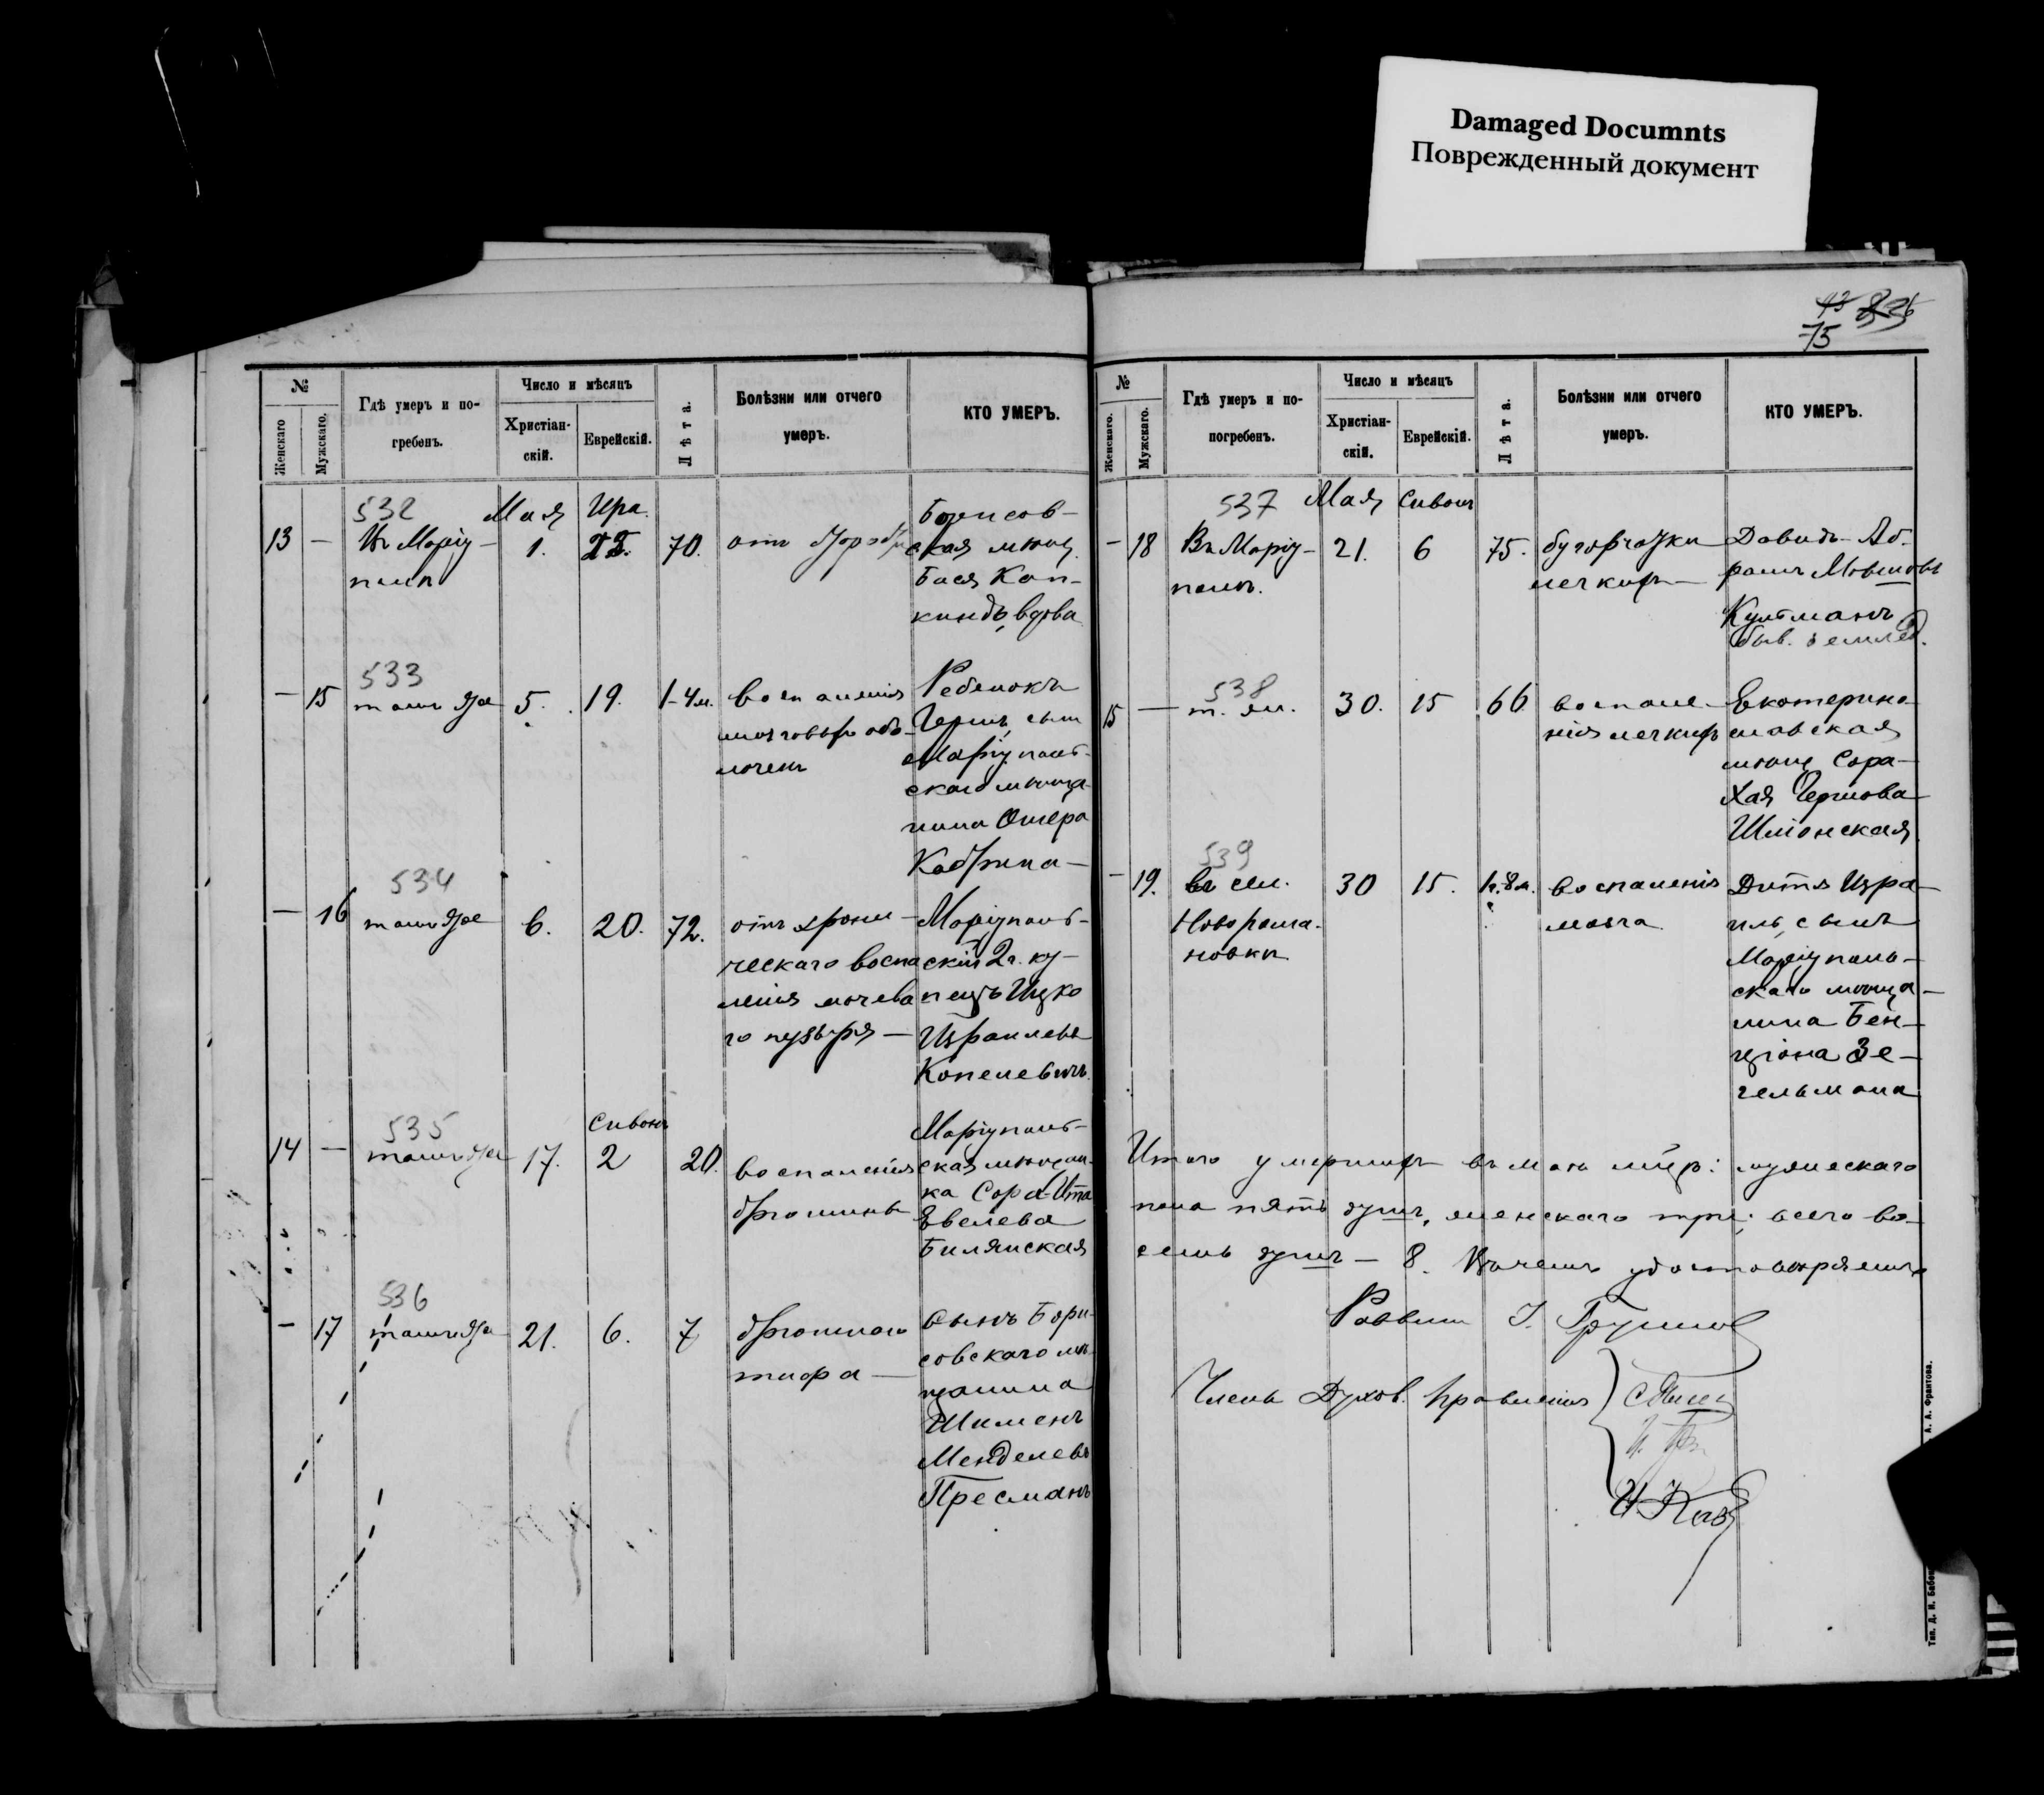 Damaged Documnts
Поврежденный документ
75
№
Женскаго
Мужскаго.
Гдѣ умеръ и по-
гребенъ.
Число и мѣсяцъ
Христіан-
скій.
Еврейскій.
Лѣта.
Болѣзни или отчего
умеръ.
КТО УМЕРЪ.
532
Мая
13 —
1.
70.
отъ
Борисов-
ская мѣщ.
Бася Кап-
киндъ, вдова
533
— 15
тамъ же
5.
19.
1-4м.
воспаленія
мозговыхъ обо-
лочекъ
Ребенокъ
сынъ
Маріуполь-
скаго мѣща-
нина Ошера
534
— 16
тамъ же
6.
20.
72.
отъ хрони-
ческаго воспа
ленія мочева
го пузыря —
Маріуполь-
скій 2 г. ку-
пецъ Ицко
Израилевъ
Копелевичъ.
535
Сивонъ
14 —
тамъ же
17.
2
20.
воспаленія
брюшины
Маріуполь-
ская мѣщан-
ка Сора-Ита
Евелева
Билянская
536
— 17
тамъ же
21.
6.
7
брюшного
тифа —
Сынъ Бори-
совскаго мѣ-
щанина
Шименъ
Менделевъ
Пресманъ
№
Женскаго.
Мужскаго.
Гдѣ умеръ и по-
погребенъ.
Число и мѣсяцъ
Христіан-
скій.
Еврейскій.
Лѣта.
Болѣзни или отчего
умеръ.
КТО УМЕРЪ.
537
Мая
Сивонъ
— 18
Въ Маріу-
полѣ.
21.
6
75.
бугорчатки
легкихъ —
Давидъ-Аб-
рамъ Мовшовъ
быв. землед.
538
15 —
т. же.
30.
15
66
воспале-
нія легкихъ
Екатерино-
славская
мѣщ. Сора-
Хая
Шліонская
539
— 19.
въ сел.
Новорома-
новки
30
15.
1г. 8м.
воспаленія
мозга
Дитя Изра-
иль, сынъ
Маріуполь-
скаго мѣща-
нина Бен-
ціона Зе-
гельмана
Итого умершихъ въ маѣ мѣс.: мужескаго
пола пять душъ, женскаго три; всего во-
семь душъ — 8. Въ чемъ удостовѣряемъ
Раввинъ
Члены Духов. Правленія
А. А. Франтова.
Тип. Д. И.